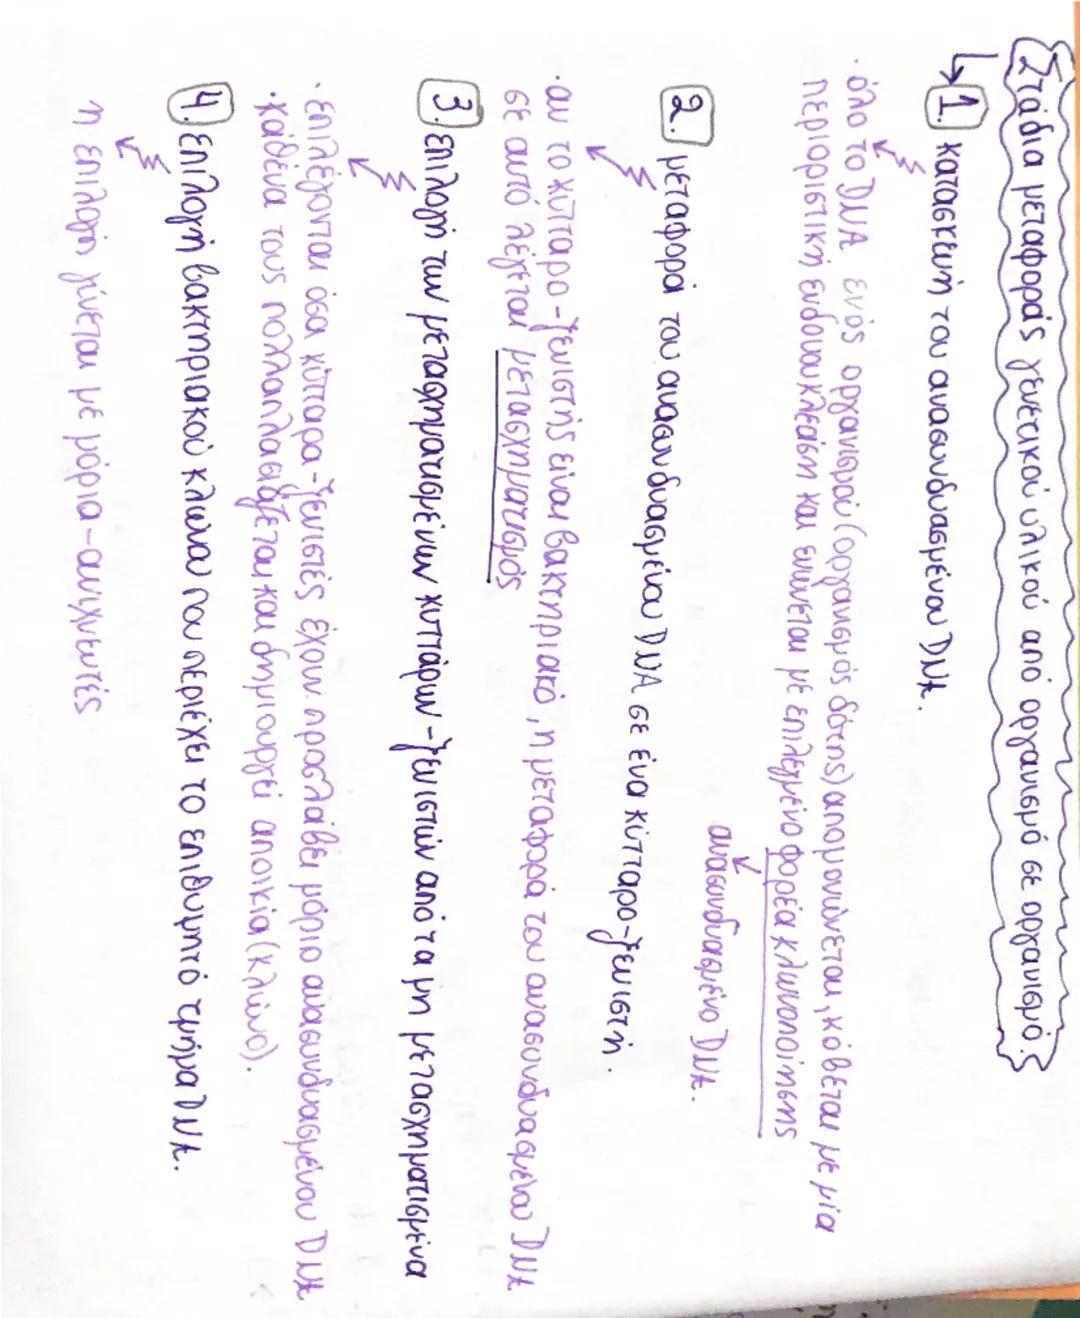 Στάδια μεταφοράς γενετικού υλικού από οργανισμό σε οργανισμό
1. κατασκευή του ανασυνδυασμένου DNA.
· όλο το DNA ενός οργανισμού (οργανισμός δότης) απομονώνεται, κόβεται με μία
περιοριστική ενδονουκλεάση και ενώνεται με επιλεγμένο φορέα κλωνοποίησης
ανασυνδυασμένο DNA.
2. μεταφορά του ανασυνδυασμένου DNA σε ένα κύτταρο-ξενιστή.
· αν το κύτταρο-ξενιστής είναι βακτηριακό, η μεταφορά του ανασυνδυασμένου DNA
σε αυτό λέγεται μετασχηματισμός
3. επιλογή των μετασχηματισμένων κυττάρων-ξενιστών από τα μη μετασχηματισμένα
· επιλέγονται όσα κύτταρα-ξενιστές έχουν προσλάβει μόριο ανασυνδυασμένου DNA
· καθένα τους πολλαπλασιάζεται και δημιουργεί αποικία (κλώνο).
4. επιλογή βακτηριακού κλώνου που περιέχει το επιθυμητό τμήμα DNA.
η επιλογή γίνεται με μόρια-ανιχνευτές